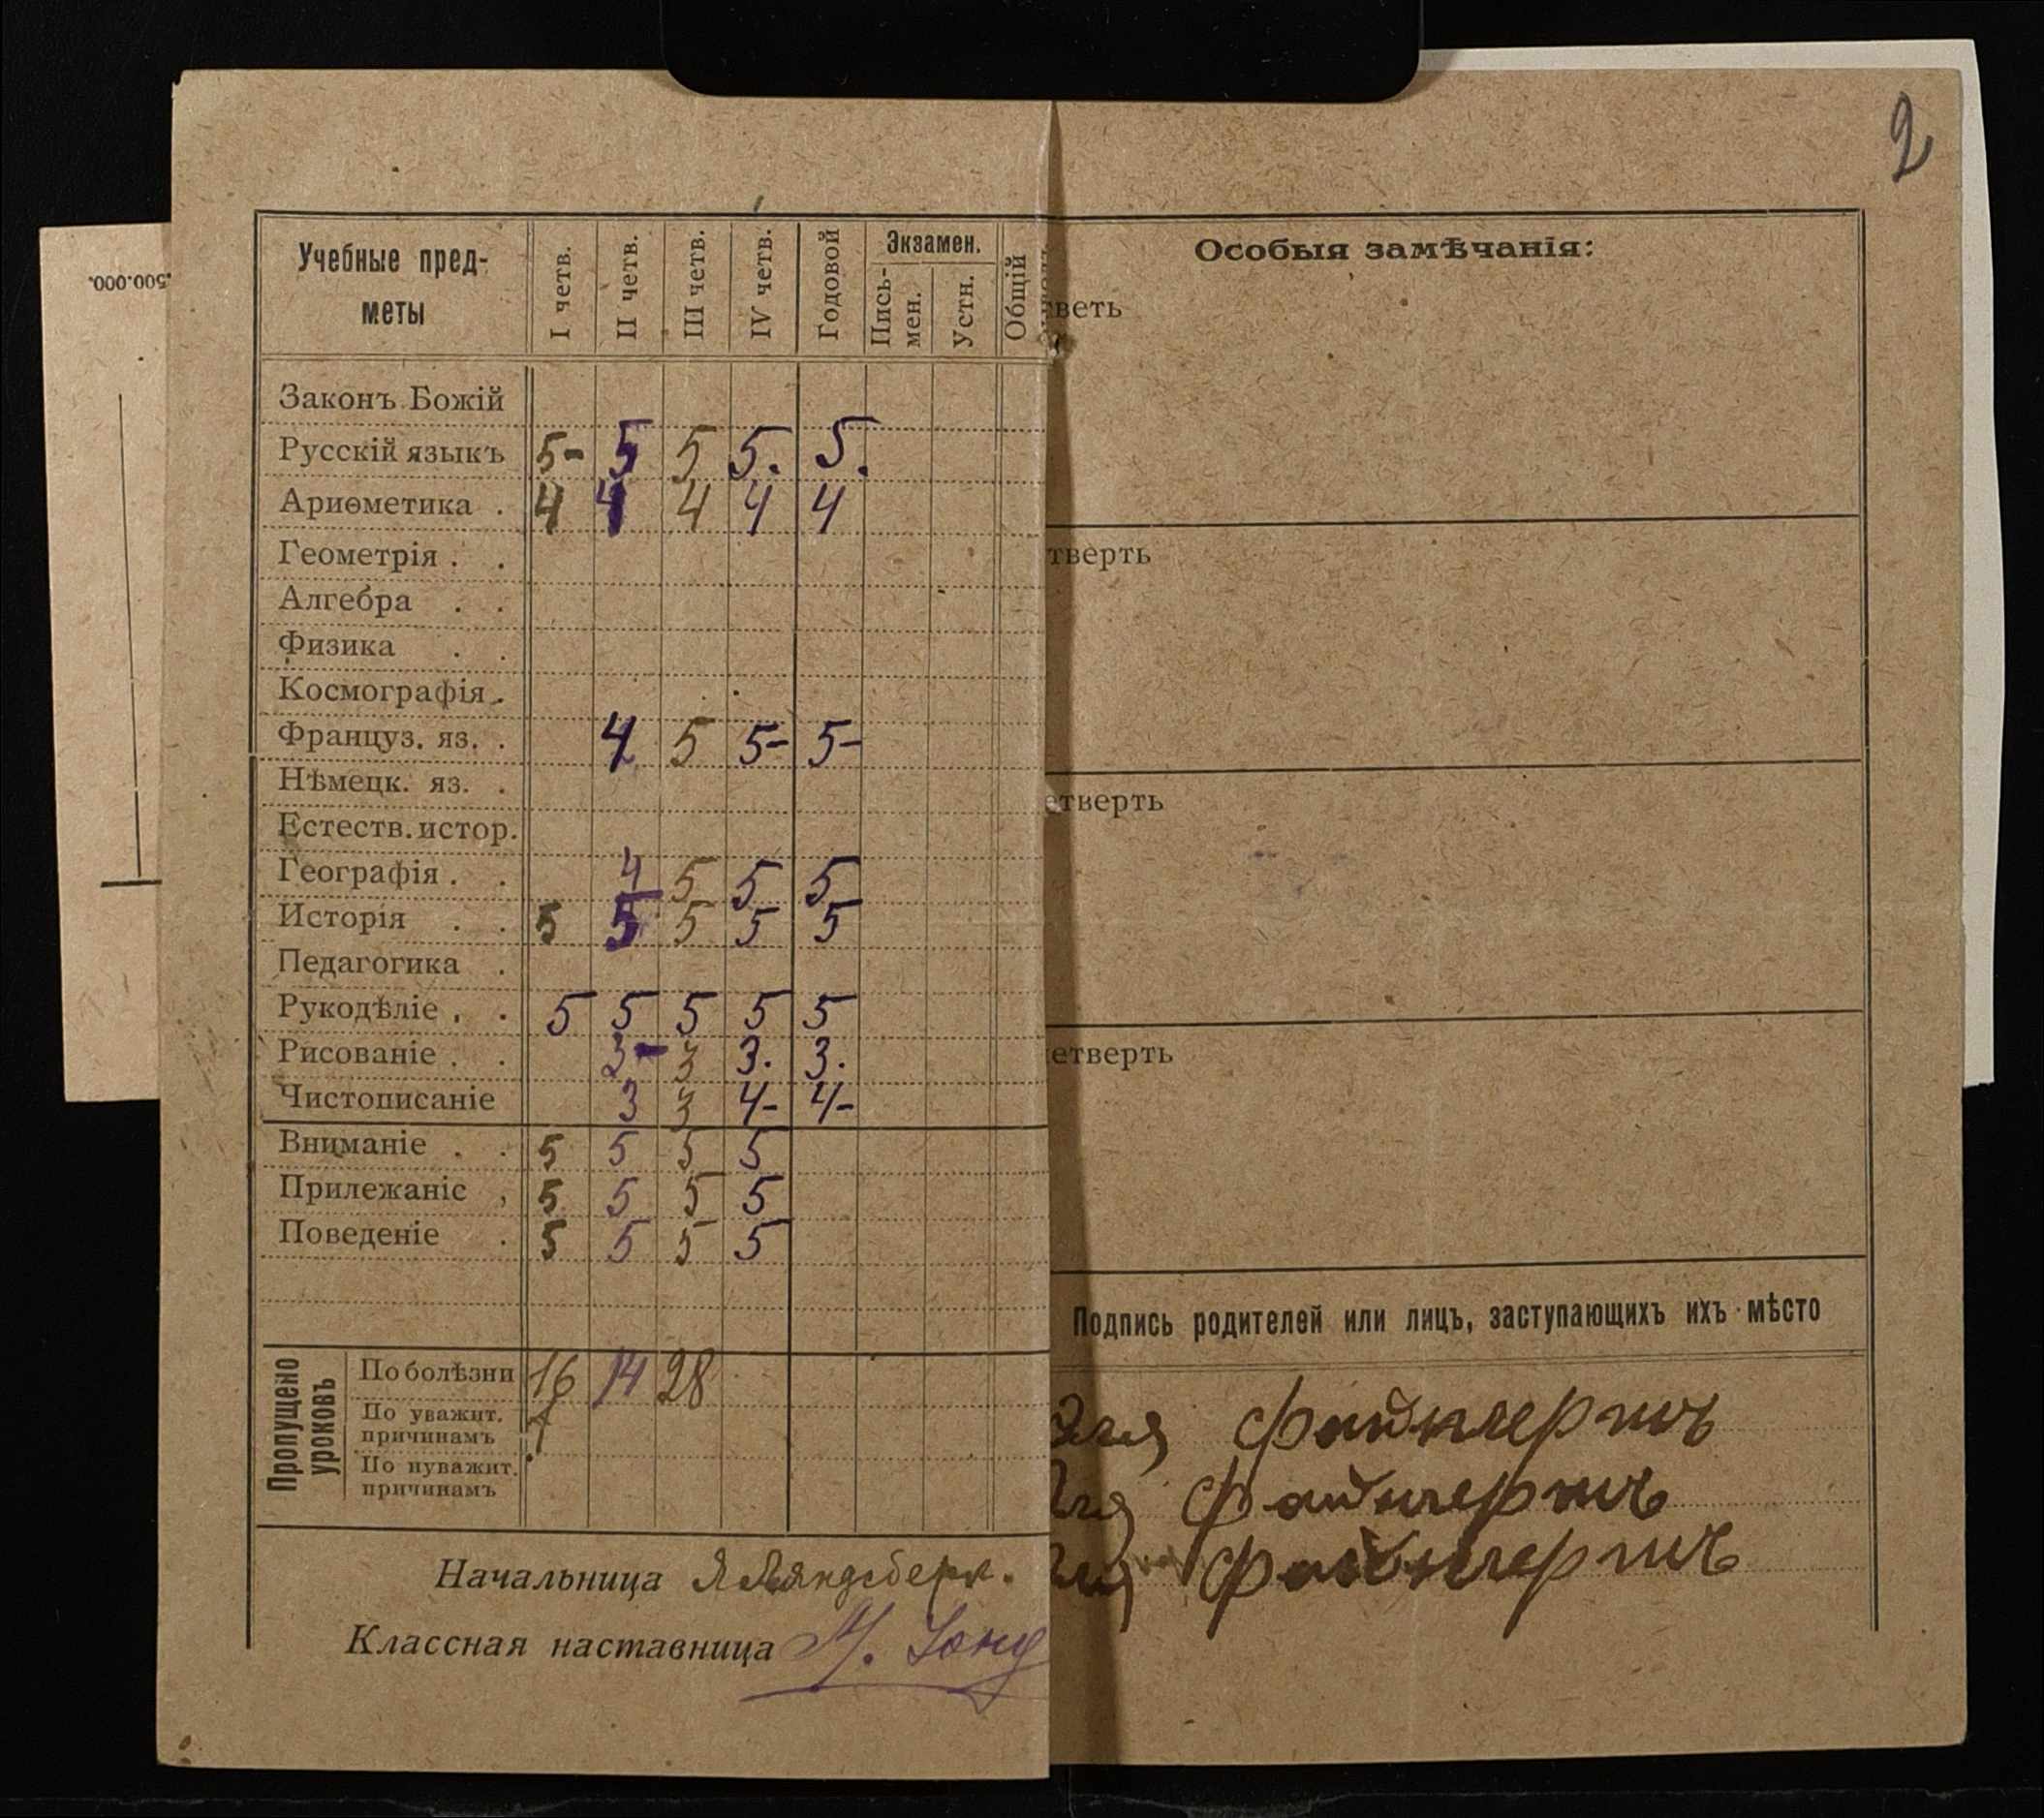 2
500.000.
Учебные пред-
меты
I четв.
II четв.
III четв.
IV четв.
Годовой
Экзамен.
Пись-
мен.
Устн.
Общій
Законъ Божій
Русскій языкъ 5- 5 5 5. 5.
Ариѳметика . 4 4 4 4 4
Геометрія . .
Алгебра . .
Физика . .
Космографія .
Француз. яз. . 4 5 5- 5-
Нѣмецк. яз. .
Естеств. истор.
Географія . . 4 5 5 5
Исторія . . 5 5 5 5 5
Педагогика .
Рукодѣліе . . 5 5 5 5 5
Рисованіе . . 3- 3 3. 3.
Чистописаніе 3 3 4- 4-
Вниманіе . . 5 5 5 5
Прилежаніе , 5 5 5 5
Поведеніе . 5 5 5 5
Пропущено
уроковъ
По болѣзни 16 14 28
По уважит.
причинамъ
По нуважит.
причинамъ
Начальница Я Ляндсберк.
Классная наставница
Особыя замѣчанія:
веть
тверть
етверть
етверть
Подпись родителей или лицъ, заступающихъ ихъ мѣсто
Файнлертъ
Файнлертъ
Файнлертъ